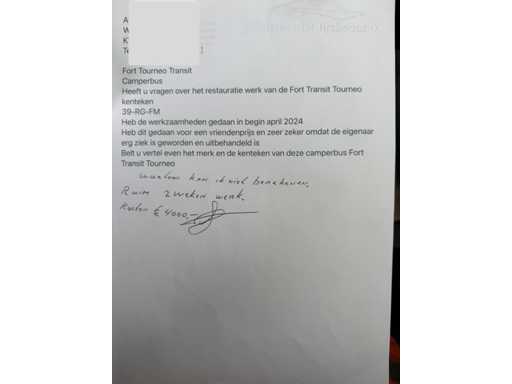 A
W
K
Te
Fort Tourneo Transit
Camperbus
Heeft u vragen over het restauratie werk van de Fort Transit Tourneo
kenteken
39-RG-FM
Heb de werkzaamheden gedaan in begin april 2024
Heb dit gedaan voor een vriendenprijs en zeer zeker omdat de eigenaar
erg ziek is geworden en uitbehandeld is
Belt u vertel even het merk en de kenteken van deze camperbus Fort
Transit Tourneo
kan ik niet
Ruim 2 weken werk.
Kosten € 4000,-